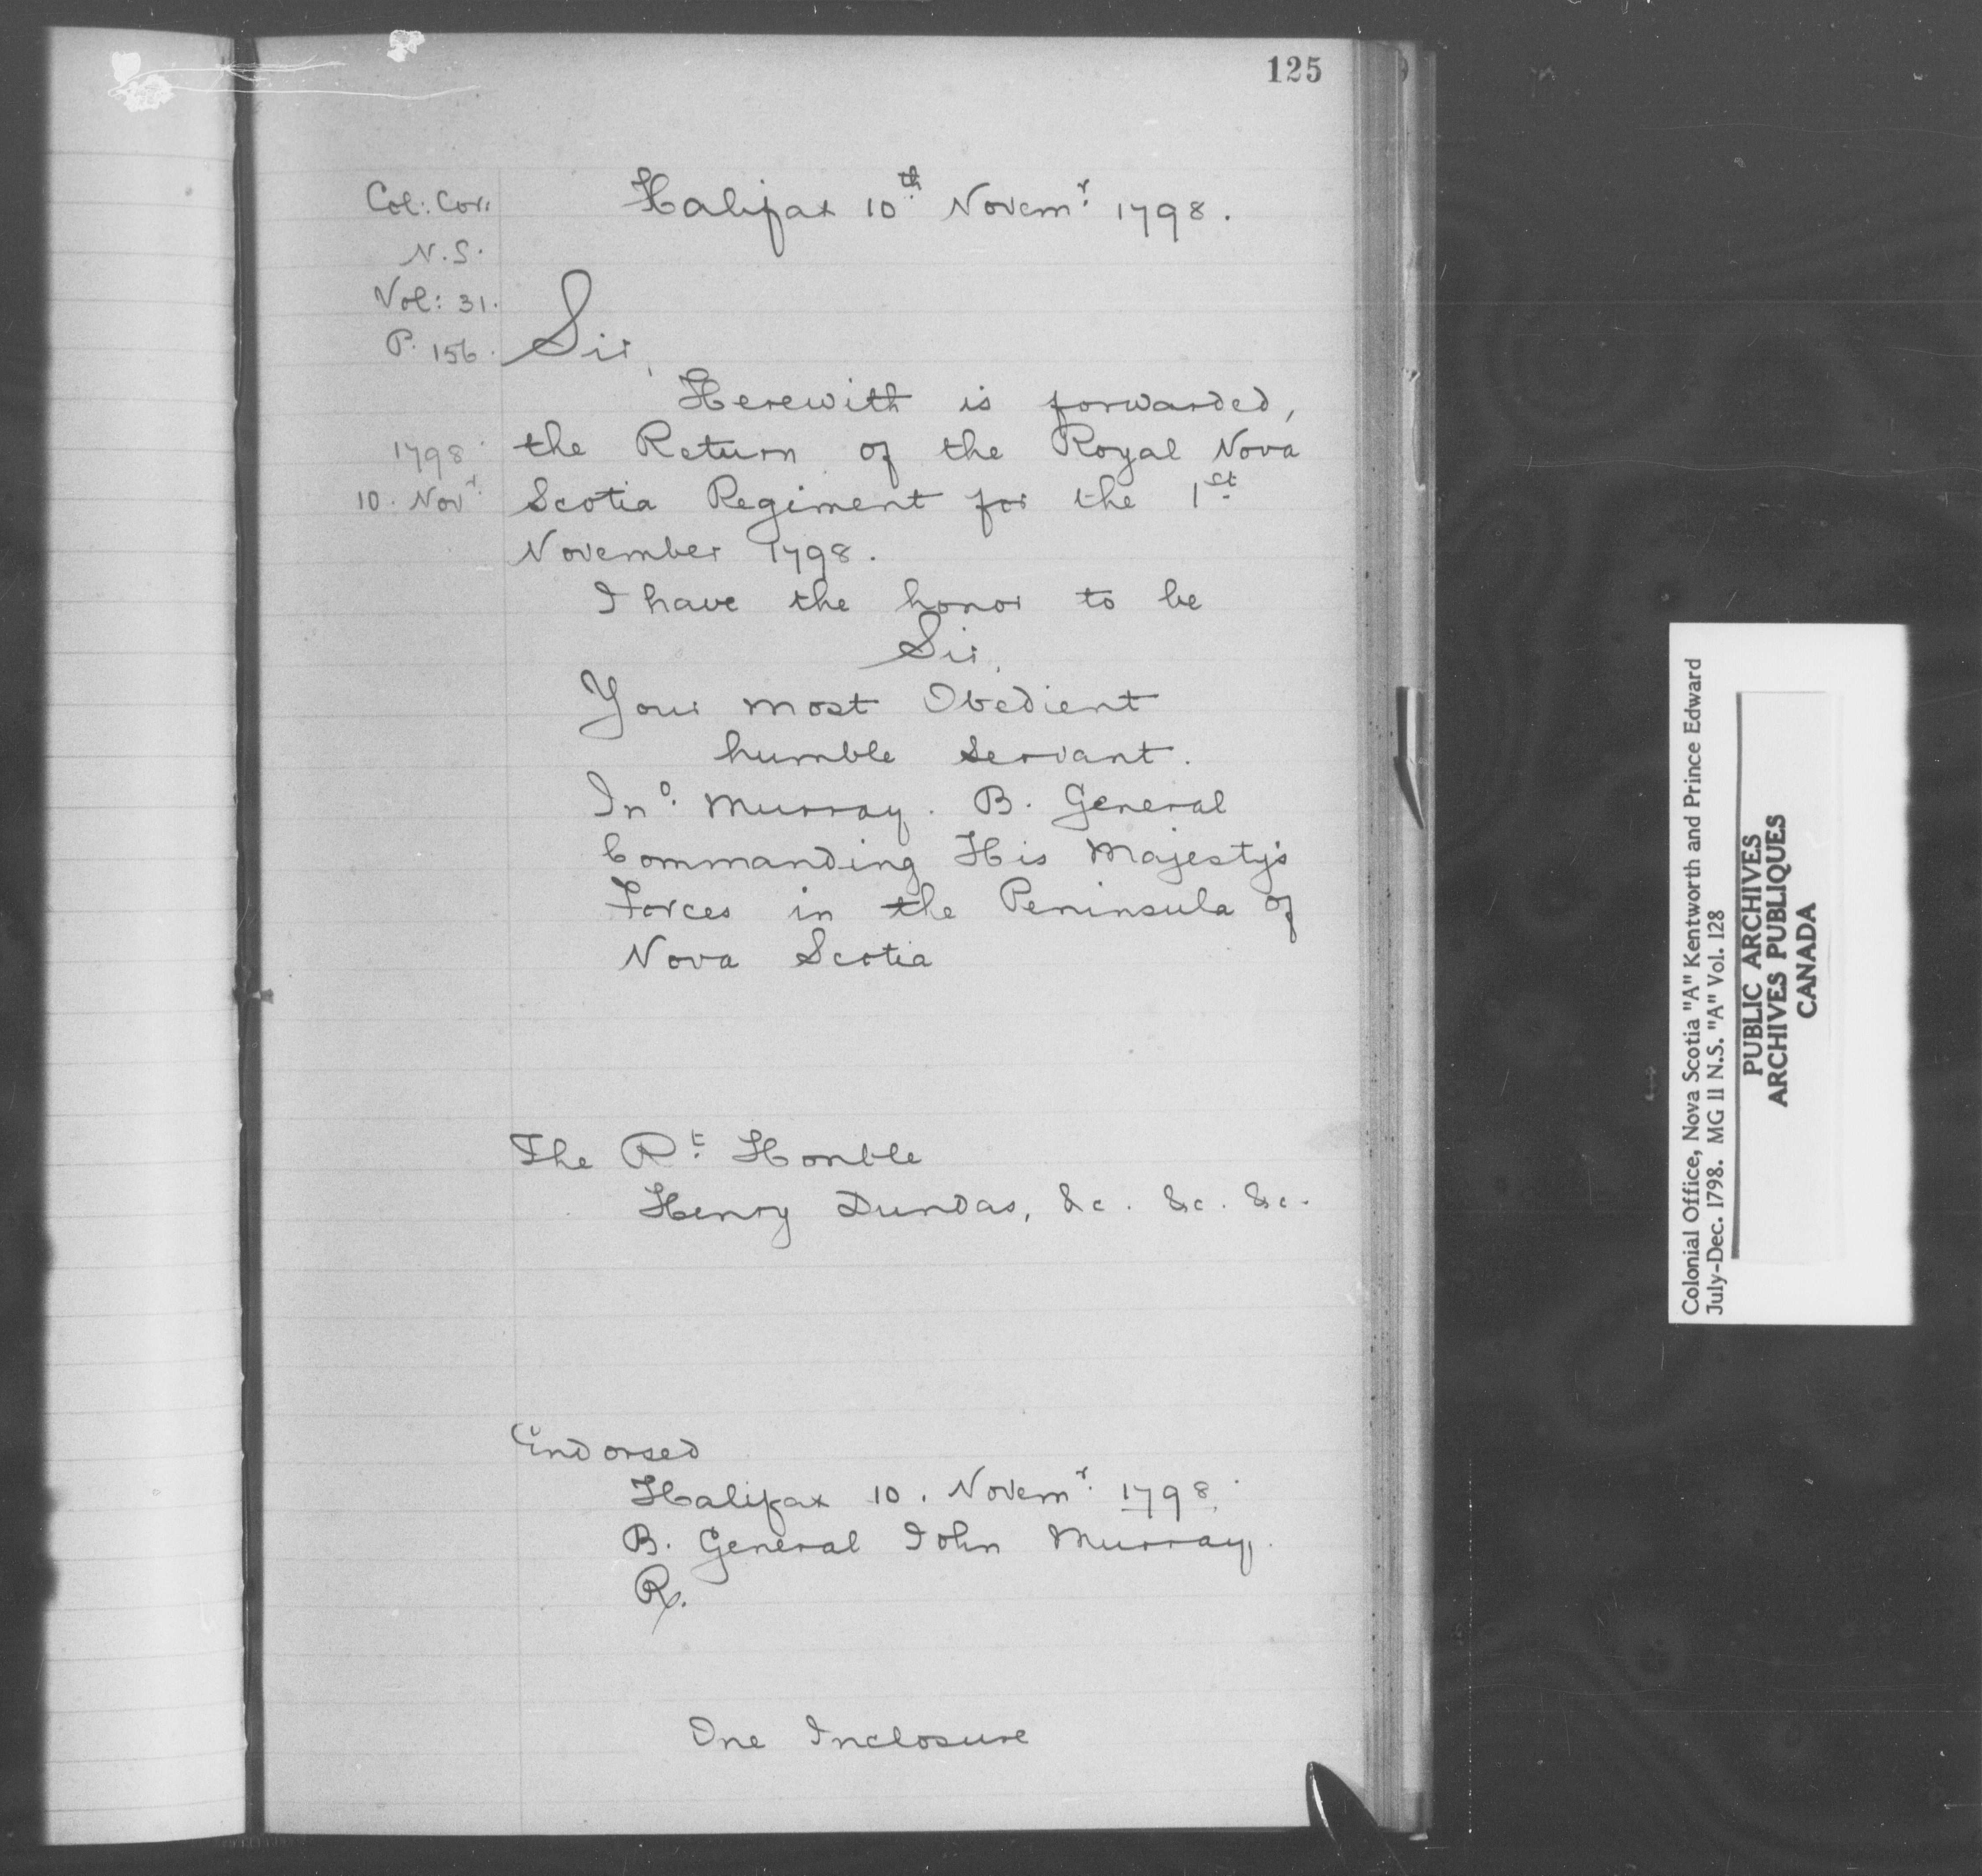 125
Col: Cor:
N.S.
Vol: 31.
P. 156.
Halifax 10th Novemr 1798.
Sir,
Herewith is forwarded,
1798
10. Novr
the Return of the Royal Nova
Scotia Regiment for the 1st
November 1798.
I have the honor to be
Sir,
Your most Obedient
humble servant.
Jno. Murray. B. General
Commanding His Majesty's
Forces in the Peninsula of
Nova Scotia
The Rt Honble
Henry Dundas, &c. &c. &c.
Endorsed
Halifax 10. Novemr 1798.
B. General John Murray.
R.
One Inclosure
Colonial Office, Nova Scotia "A" Kentworth and Prince Edward
July-Dec. 1798. MG 11 N.S. "A" Vol. 128
PUBLIC ARCHIVES
ARCHIVES PUBLIQUES
CANADA